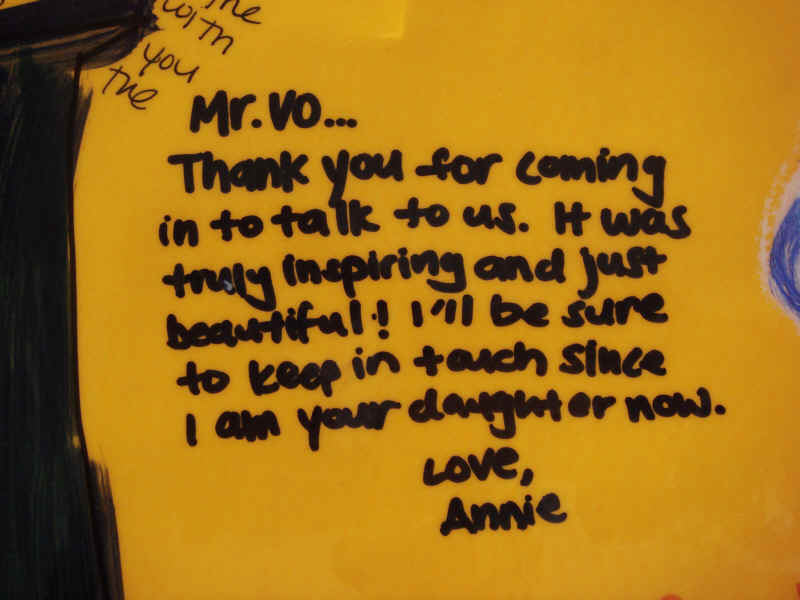 the
with
you
the
Mr. Vo...
Thank you for coming
in to talk to us. It was
truly inspiring and just
beautiful! I'll be sure
to keep in touch since
I am your daughter now.
Love,
Annie